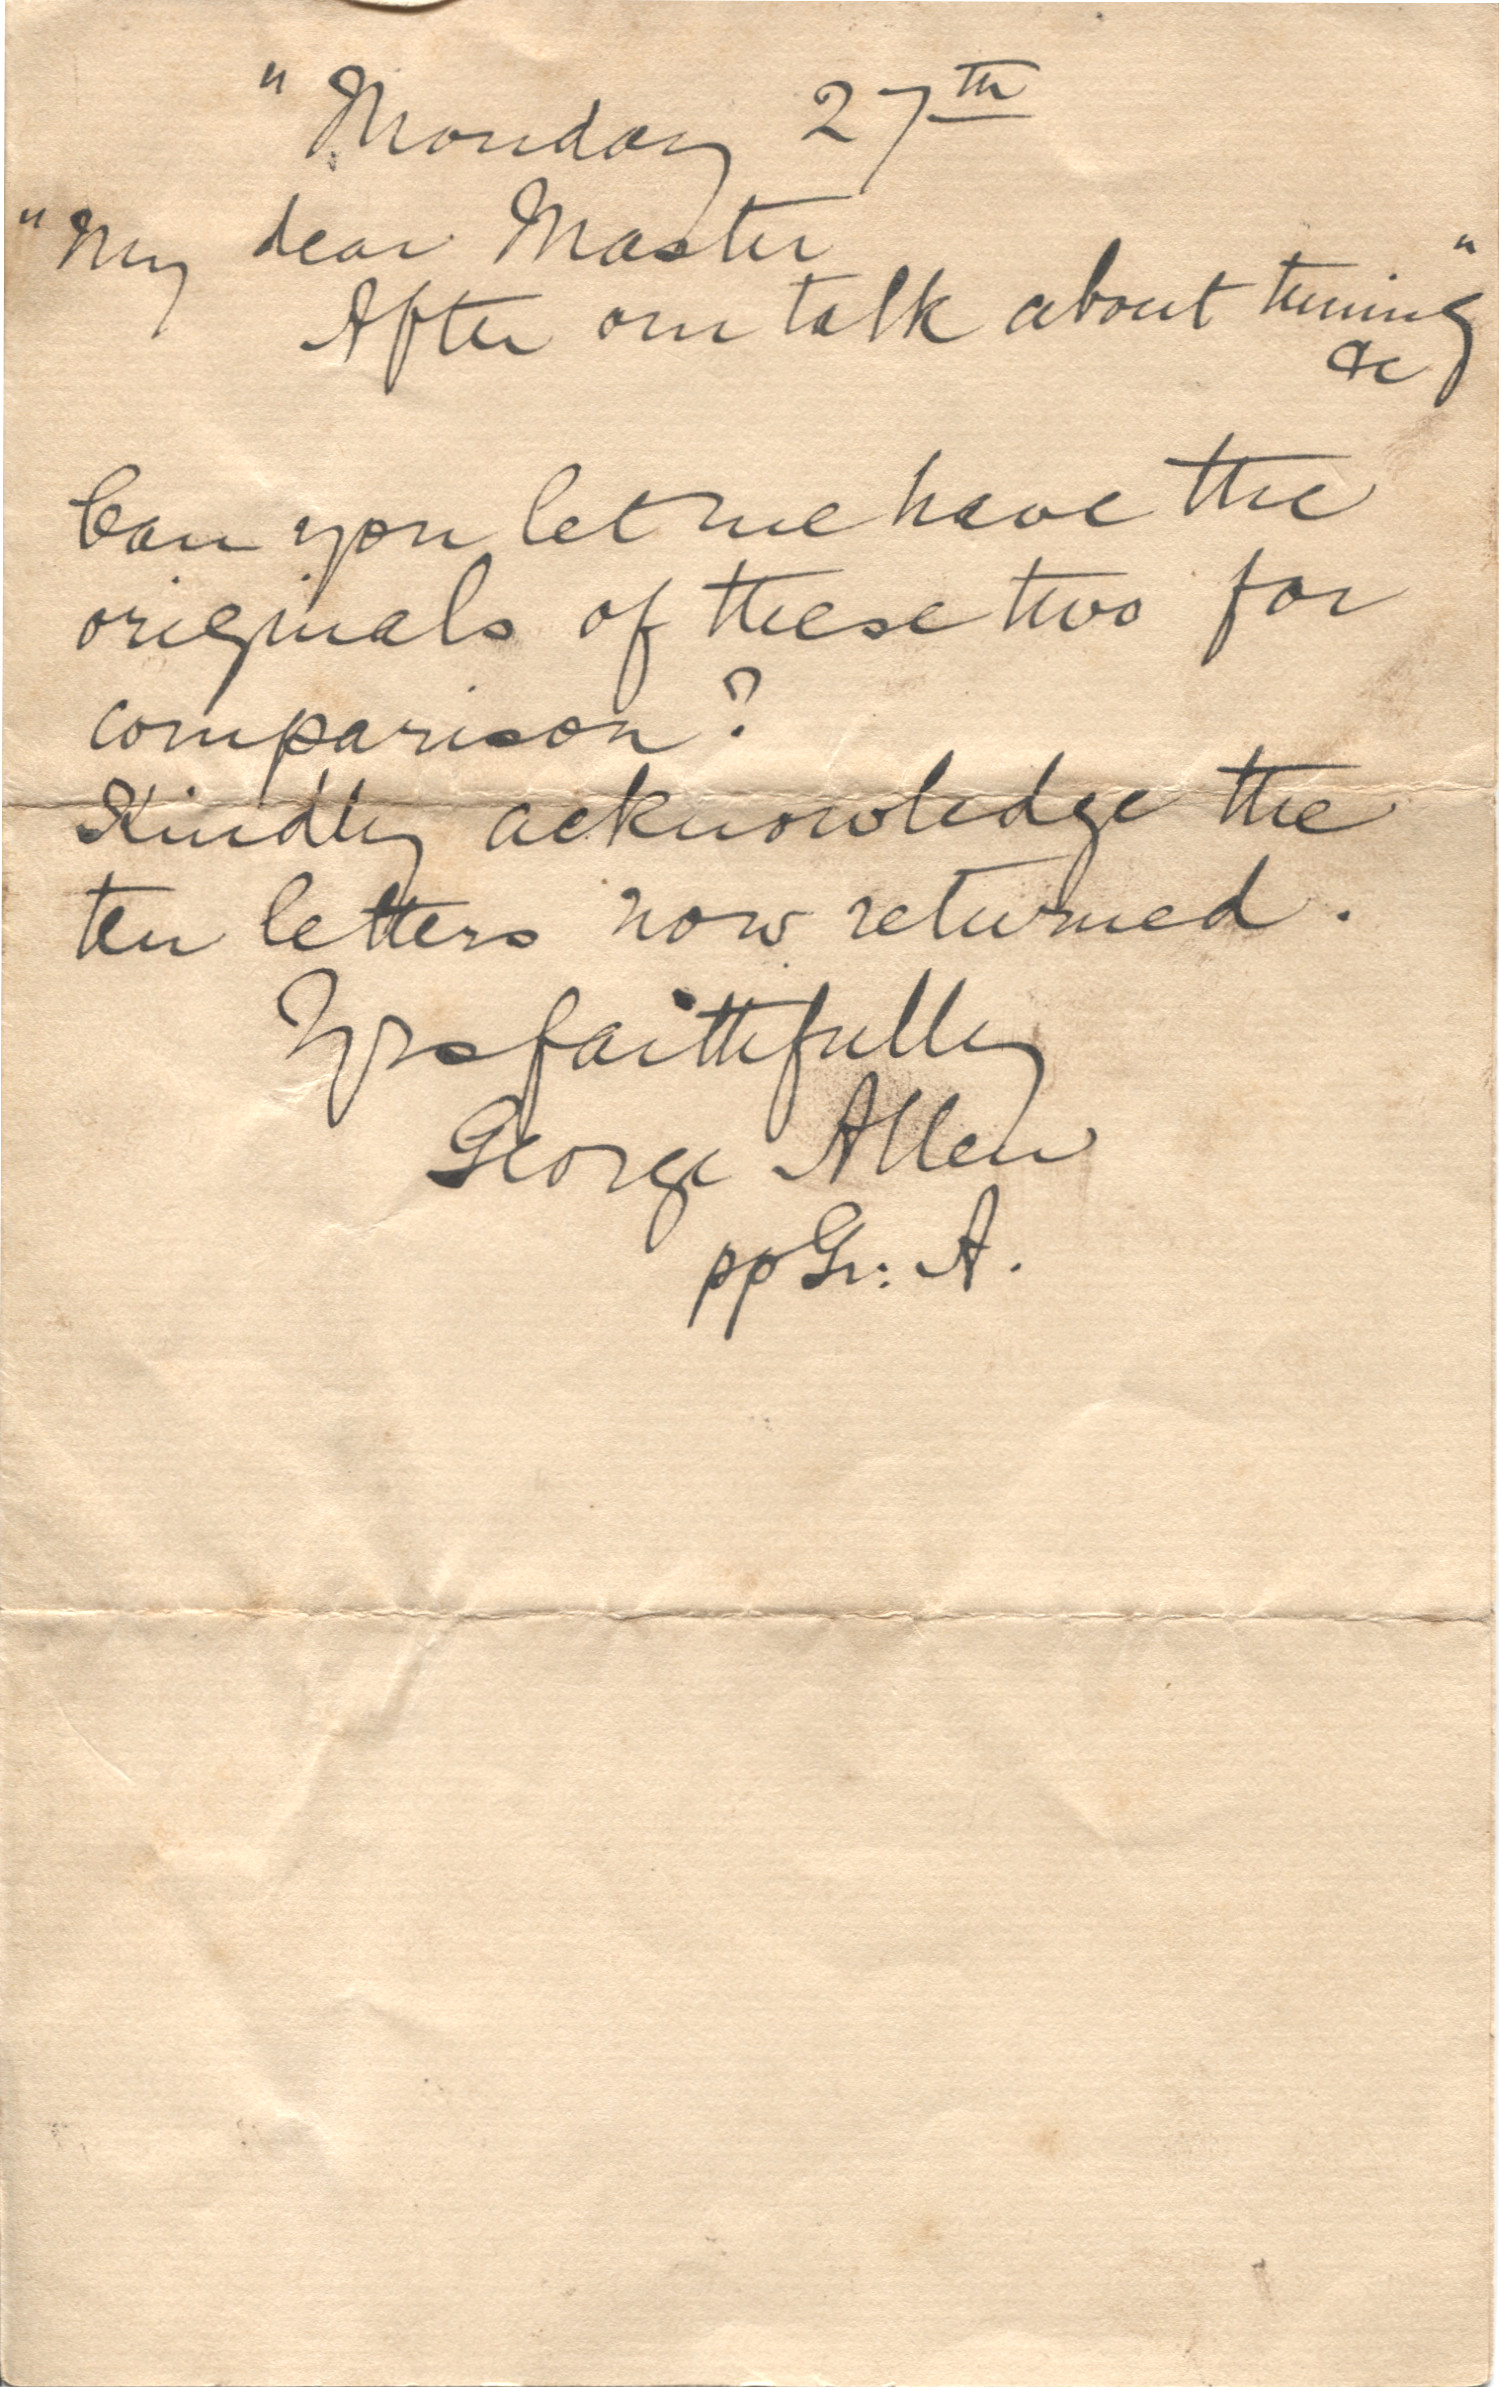 " Monday 27th
" My dear Master
After our talk about tuning "
&c
Can you let me have the
originals of these two for
comparison?
Kindly acknowledge the
ten letters now returned.
Yrs faithfully
George Allen
pp Gr: A.